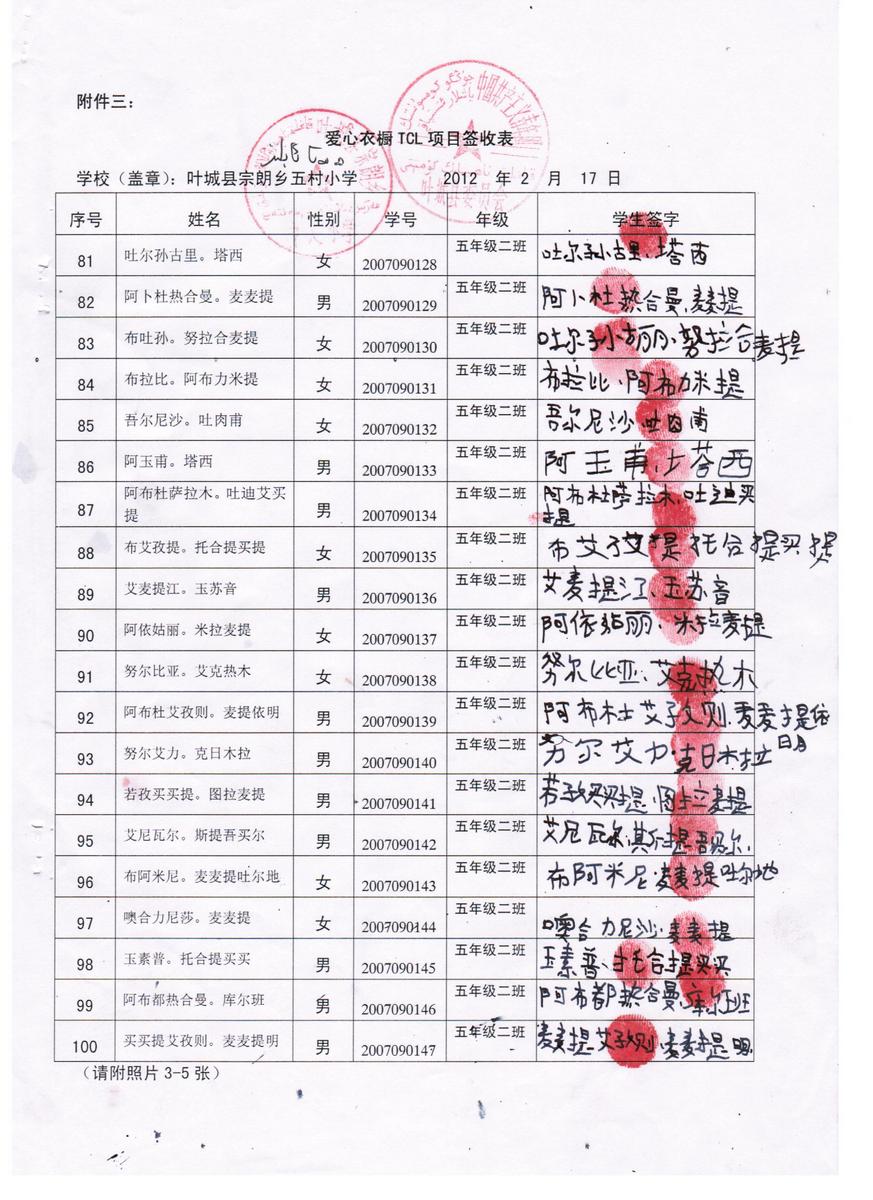 附件三：
爱心衣橱 TCL 项目签收表
学校（盖章）：叶城县宗朗乡五村小学 2012 年 2 月 17 日
序号 姓名 性别 学号 年级 学生签字
81 吐尔孙古里。塔西 女 2007090128 五年级二班 吐尔孙古里·塔西
82 阿卜杜热合曼。麦麦提 男 2007090129 五年级二班 阿卜杜热合曼·麦麦提
83 布吐孙。努拉合麦提 女 2007090130 五年级二班 努拉合麦提
84 布拉比。阿布力米提 女 2007090131 五年级二班 布拉比·阿布力米提
85 吾尔尼沙。吐肉甫 女 2007090132 五年级二班 吾尔尼沙·吐肉甫
86 阿玉甫。塔西 男 2007090133 五年级二班 阿玉甫·塔西
87 阿布杜萨拉木。吐迪艾买
提 男 2007090134 五年级二班 阿布杜萨拉木·吐迪买
提
88 布艾孜提。托合提买提 女 2007090135 五年级二班 托合提买提
89 艾麦提江。玉苏音 男 2007090136 五年级二班 艾麦提江·玉苏音
90 阿依姑丽。米拉麦提 女 2007090137 五年级二班 阿依姑丽·米拉麦提
91 努尔比亚。艾克热木 女 2007090138 五年级二班 努尔比亚·艾克热木
92 阿布杜艾孜则。麦提依明 男 2007090139 五年级二班
93 努尔艾力。克日木拉 男 2007090140 五年级二班 努尔艾力·克日木拉
94 若孜买买提。图拉麦提 男 2007090141 五年级二班 若孜买买提·图拉麦提
95 艾尼瓦尔。斯提吾买尔 男 2007090142 五年级二班 艾尼瓦尔·斯提吾买尔
96 布阿米尼。麦麦提吐尔地 女 2007090143 五年级二班 布阿米尼·麦麦提吐尔地
97 噢合力尼莎。麦麦提 女 2007090144 五年级二班 噢合力尼沙·麦麦提
98 玉素普。托合提买买 男 2007090145 五年级二班 玉素普·托合提买买
99 阿布都热合曼。库尔班 男 2007090146 五年级二班 阿布都热合曼·库尔班
100 买买提艾孜则。麦麦提明 男 2007090147 五年级二班 麦麦提艾孜则·麦麦提明
（请附照片 3-5 张）